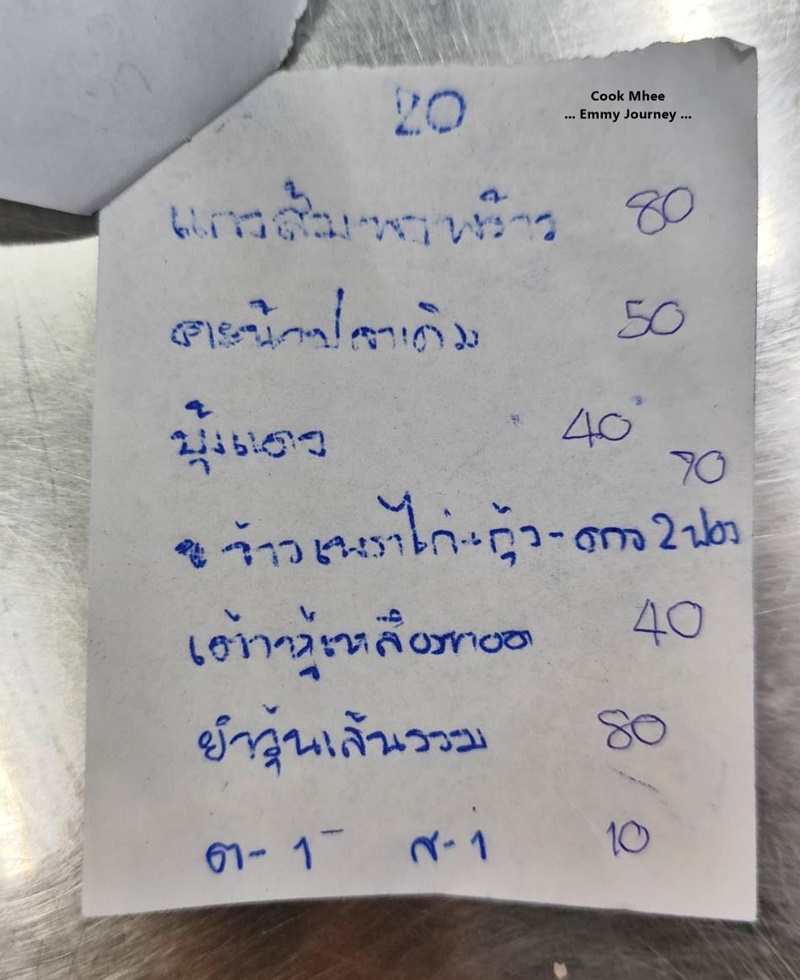 20
Cook Mhee
... Emmy Journey ...
แกงส้มมะพร้าว 80
คะน้าปลาเค็ม 50
บุ้งแดง 40
70
ข้าวเพราไก่+กุ้ง-ดาว 2 ฟอง
เต้าหู้เหลืองทอด 40
ยำวุ้นเส้นรวม 80
ต-1 ส-1 10